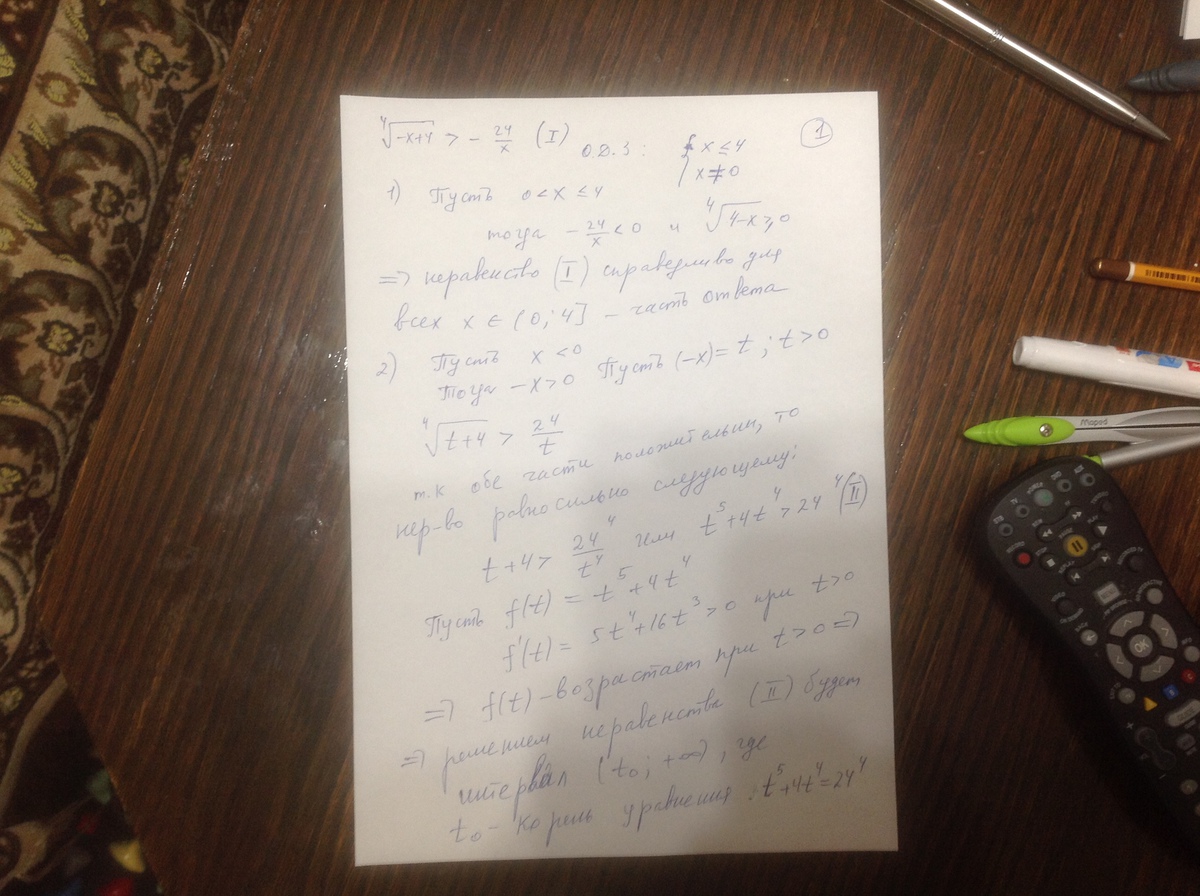 ⁴√(-x+4) > - 24/x (I) О.Д.З: { x ≤ 4 ①
x ≠ 0
1) Пусть 0 < x ≤ 4
тогда - 24/x < 0 и ⁴√(4-x) ≥ 0
=> неравенство (I) справедливо для
всех x ∈ (0; 4] - часть ответа
2) Пусть x < 0
Тогда -x > 0 Пусть (-x) = t ; t > 0
⁴√(t+4) > 24/t
т.к обе части положительны, то
нер-во равносильно следующему:
t+4 > 24⁴/t⁴ или t⁵+4t⁴ > 24⁴ (II)
Пусть f(t) = t⁵+4t⁴
f'(t) = 5t⁴+16t³ > 0 при t>0
=> f(t) - возрастает при t>0 =>
=> решением неравенства (II) будет
интервал (t₀; +∞), где
t₀ - корень уравнения: t⁵+4t⁴=24⁴
Maped
OK